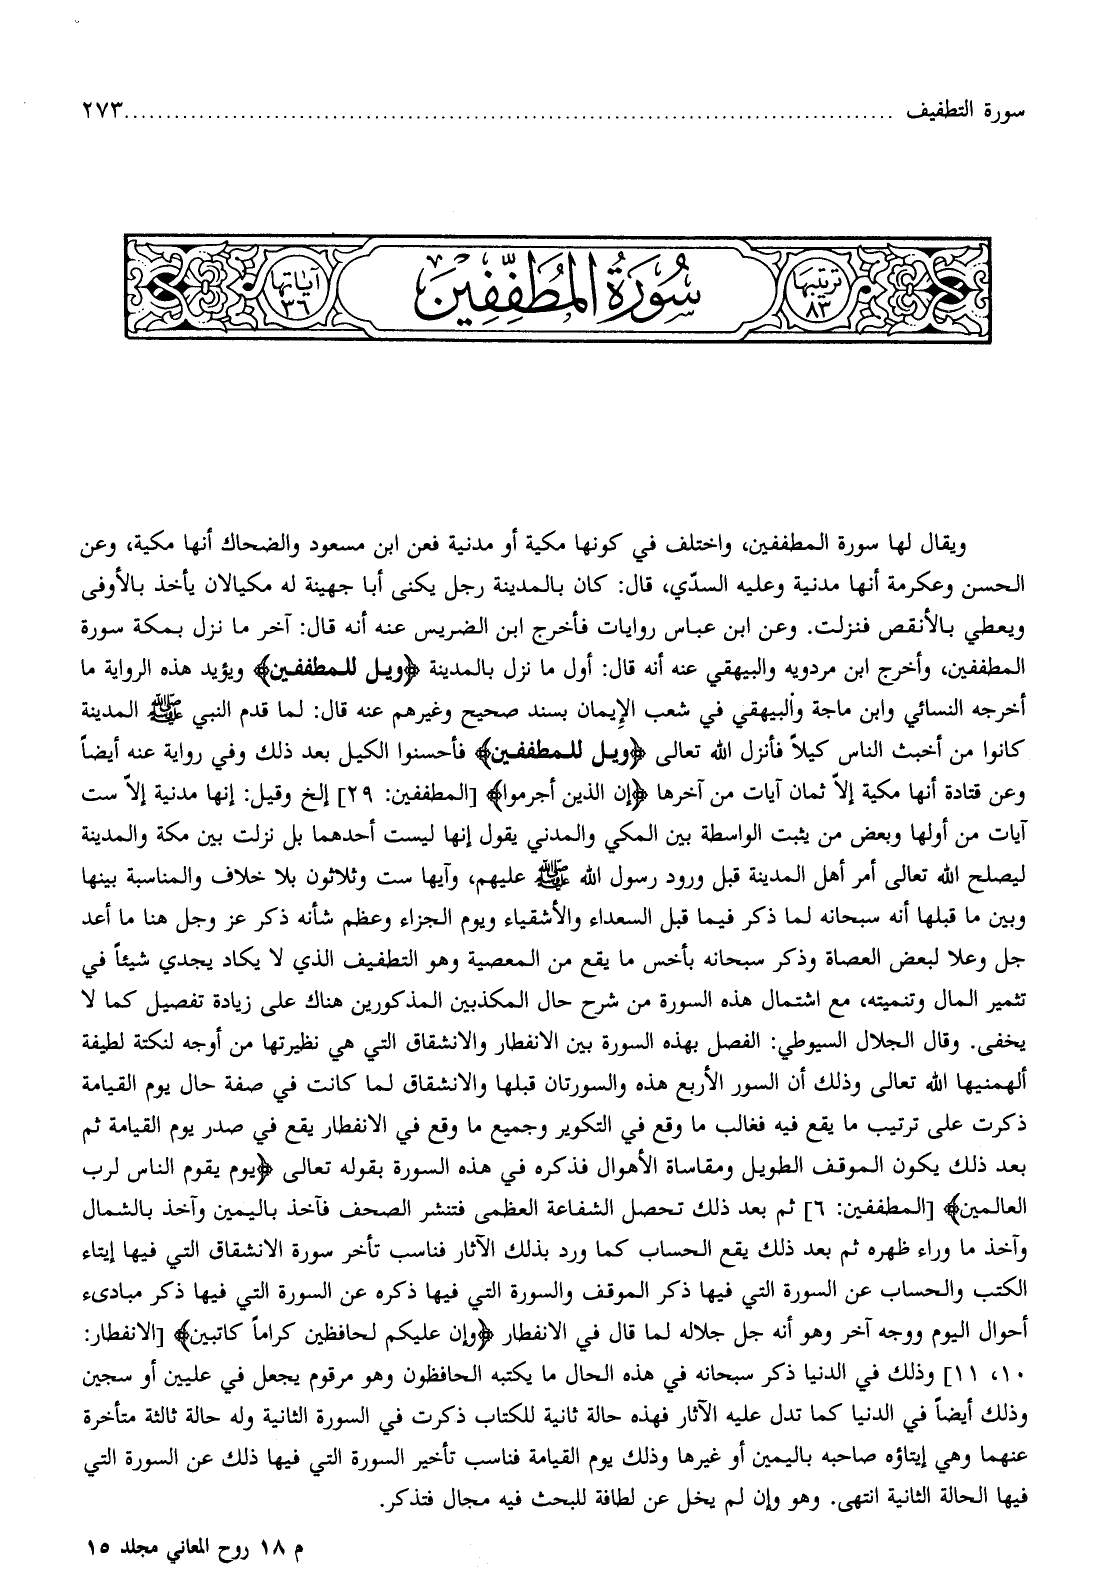 سورة التطفيف ........................................................................................ ٢٧٣
ترتيبها
٨٣
سُورَةُ المُطَفِّفِينَ
آياتها
٣٦
ويقال لها سورة المطففين، واختلف في كونها مكية أو مدنية فعن ابن مسعود والضحاك أنها مكية، وعن
الحسن وعكرمة أنها مدنية وعليه السدّي، قال: كان بالمدينة رجل يكنى أبا جهينة له مكيالان يأخذ بالأوفى
ويعطي بالأنقص فنزلت. وعن ابن عباس روايات فأخرج ابن الضريس عنه أنه قال: آخر ما نزل بمكة سورة
المطففين، وأخرج ابن مردويه والبيهقي عنه أنه قال: أول ما نزل بالمدينة ﴿ويل للمطففين﴾ ويؤيد هذه الرواية ما
أخرجه النسائي وابن ماجة والبيهقي في شعب الإيمان بسند صحيح وغيرهم عنه قال: لما قدم النبي ﷺ المدينة
كانوا من أخبث الناس كيلاً فأنزل الله تعالى ﴿ويل للمطففين﴾ فأحسنوا الكيل بعد ذلك وفي رواية عنه أيضاً
وعن قتادة أنها مكية إلاّ ثمان آيات من آخرها ﴿إن الذين أجرموا﴾ [المطففين: ٢٩] إلخ وقيل: إنها مدنية إلاّ ست
آيات من أولها وبعض من يثبت الواسطة بين المكي والمدني يقول إنها ليست أحدهما بل نزلت بين مكة والمدينة
ليصلح الله تعالى أمر أهل المدينة قبل ورود رسول الله ﷺ عليهم، وآيها ست وثلاثون بلا خلاف والمناسبة بينها
وبين ما قبلها أنه سبحانه لما ذكر فيما قبل السعداء والأشقياء ويوم الجزاء وعظم شأنه ذكر عز وجل هنا ما أعد
جل وعلا لبعض العصاة وذكر سبحانه بأخس ما يقع من المعصية وهو التطفيف الذي لا يكاد يجدي شيئاً في
تثمير المال وتنميته، مع اشتمال هذه السورة من شرح حال المكذبين المذكورين هناك على زيادة تفصيل كما لا
يخفى. وقال الجلال السيوطي: الفصل بهذه السورة بين الانفطار والانشقاق التي هي نظيرتها من أوجه لنكتة لطيفة
ألهمنيها الله تعالى وذلك أن السور الأربع هذه والسورتان قبلها والانشقاق لما كانت في صفة حال يوم القيامة
ذكرت على ترتيب ما يقع فيه فغالب ما وقع في التكوير وجميع ما وقع في الانفطار يقع في صدر يوم القيامة ثم
بعد ذلك يكون الموقف الطويل ومقاساة الأهوال فذكره في هذه السورة بقوله تعالى ﴿يوم يقوم الناس لرب
العالمين﴾ [المطففين: ٦] ثم بعد ذلك تحصل الشفاعة العظمى فتنشر الصحف فآخذ باليمين وآخذ بالشمال
وآخذ ما وراء ظهره ثم بعد ذلك يقع الحساب كما ورد بذلك الآثار فناسب تأخر سورة الانشقاق التي فيها إيتاء
الكتب والحساب عن السورة التي فيها ذكر الموقف والسورة التي فيها ذكره عن السورة التي فيها ذكر مبادىء
أحوال اليوم ووجه آخر وهو أنه جل جلاله لما قال في الانفطار ﴿وإن عليكم لحافظين كراماً كاتبين﴾ [الانفطار:
١٠، ١١] وذلك في الدنيا ذكر سبحانه في هذه الحال ما يكتبه الحافظون وهو مرقوم يجعل في عليين أو سجين
وذلك أيضاً في الدنيا كما تدل عليه الآثار فهذه حالة ثانية للكتاب ذكرت في السورة الثانية وله حالة ثالثة متأخرة
عنهما وهي إيتاؤه صاحبه باليمين أو غيرها وذلك يوم القيامة فناسب تأخير السورة التي فيها ذلك عن السورة التي
فيها الحالة الثانية انتهى. وهو وإن لم يخل عن لطافة للبحث فيه مجال فتذكر.
م ١٨ روح المعاني مجلد ١٥